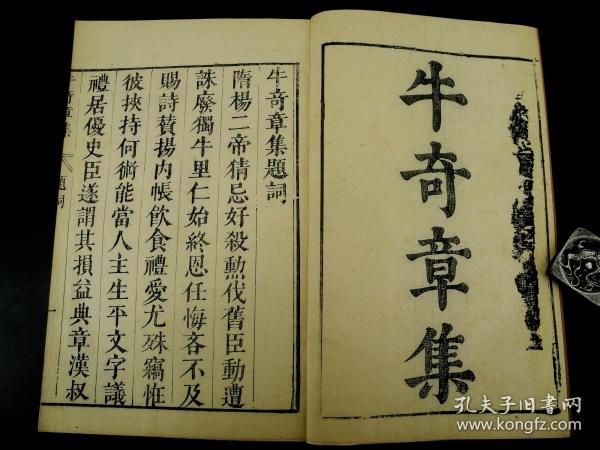 牛奇章集
牛奇章集題詞
隋楊二帝猜忌好殺勲伐舊臣動遭
誅廢獨牛里仁始終恩任悔吝不及
賜詩賛揚内帳飲食禮愛尤殊竊恠
彼挾持何術能當人主生平文字議
禮居優史臣遂謂其損益典章漢叔
牛奇章集 題詞
孔夫子旧书网
www.kongfz.com